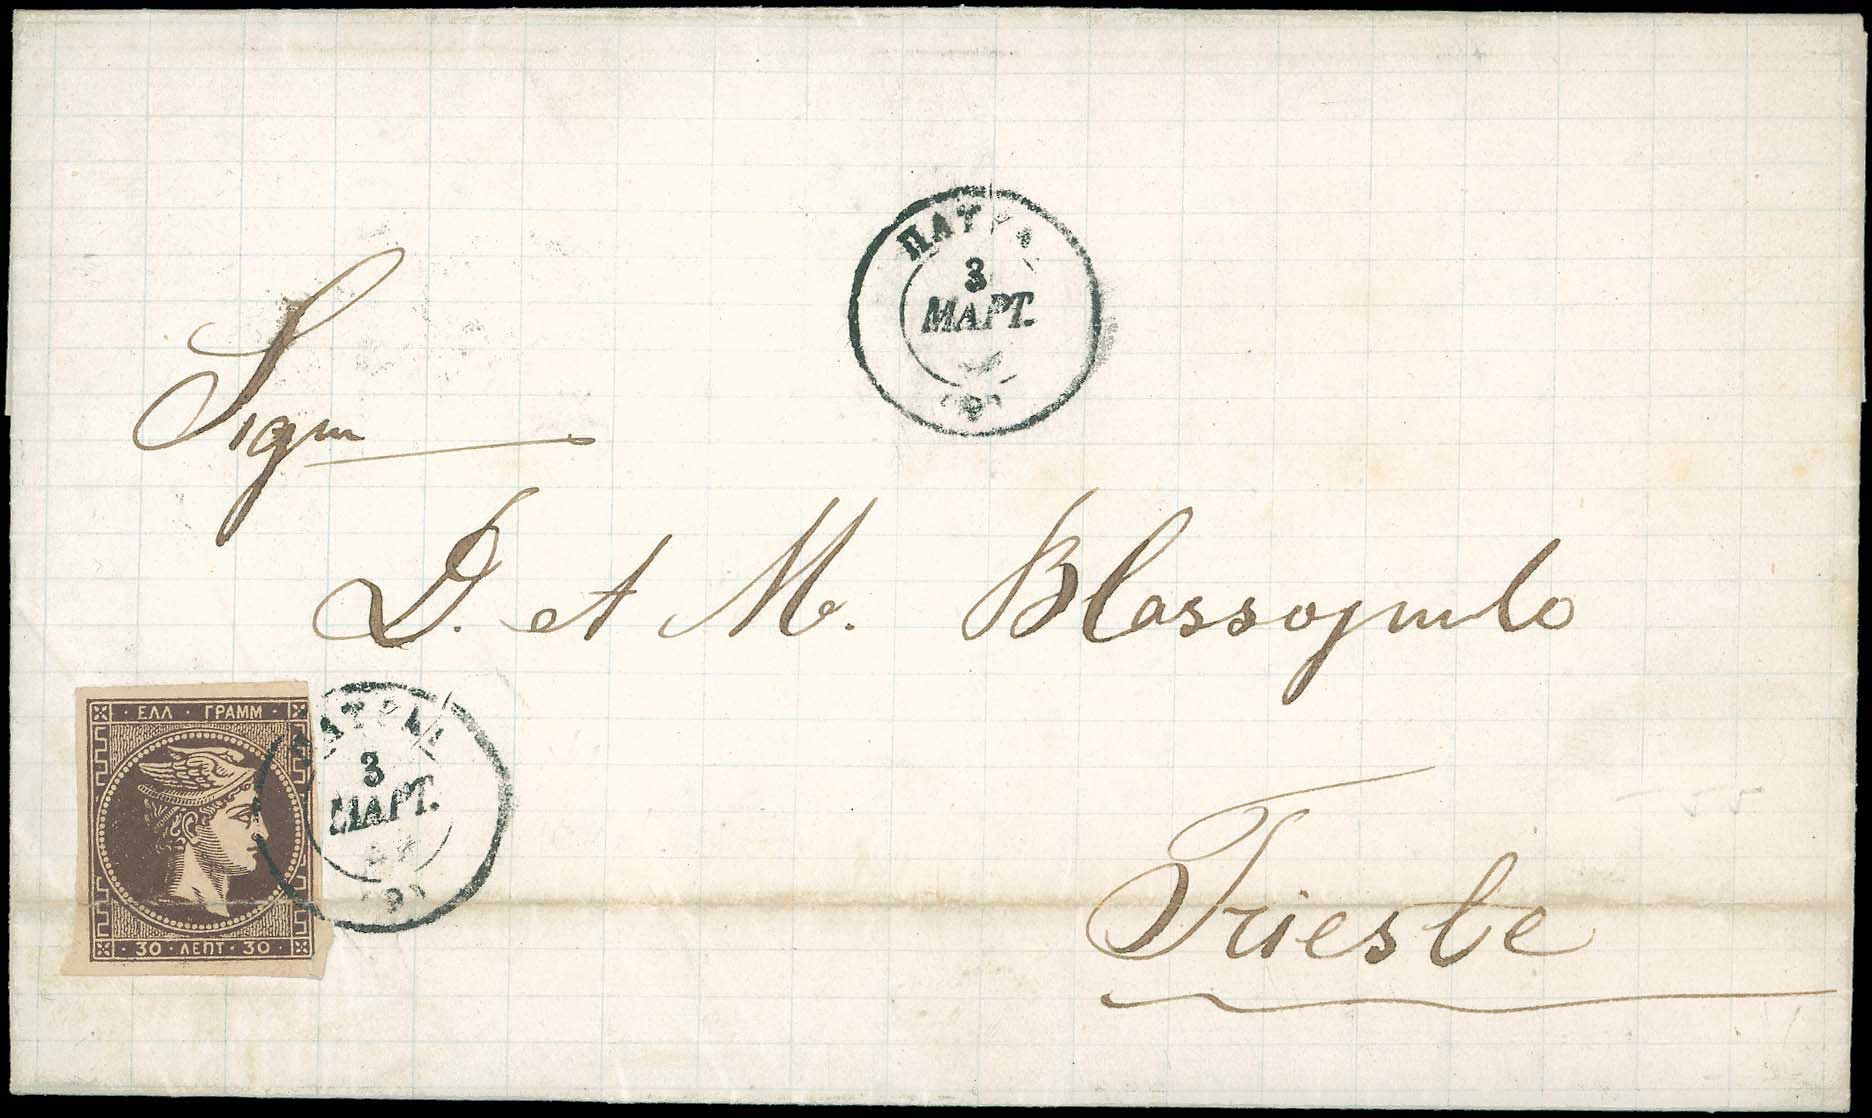 ΠΑΤΡΑΙ
3
ΜΑΡΤ.
Sigri
D. et M. Blassopulo
ΕΛΛ · ΓΡΑΜΜ ·
30 · ΛΕΠΤ · 30
ΠΑΤΡΑΙ
3
ΜΑΡΤ.
Trieste